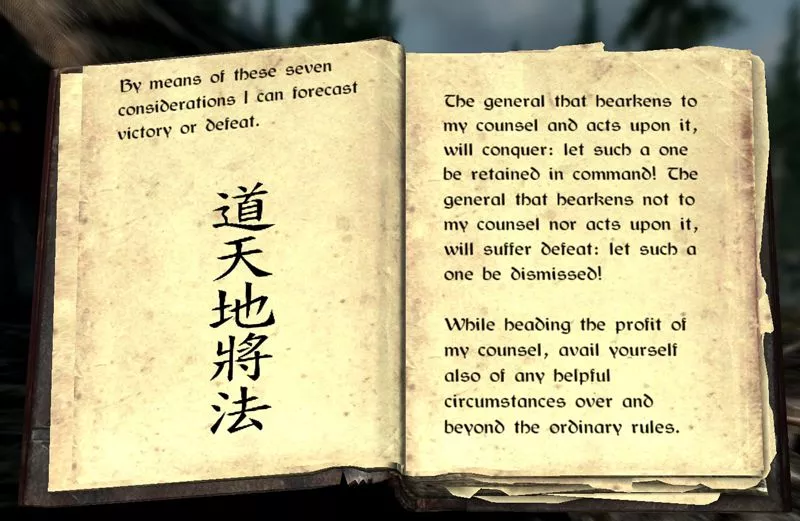 By means of these seven
considerations I can forecast
victory or defeat.
道天地將法
The general that hearkens to
my counsel and acts upon it,
will conquer: let such a one
be retained in command! The
general that hearkens not to
my counsel nor acts upon it,
will suffer defeat: let such a
one be dismissed!
While heading the profit of
my counsel, avail yourself
also of any helpful
circumstances over and
beyond the ordinary rules.